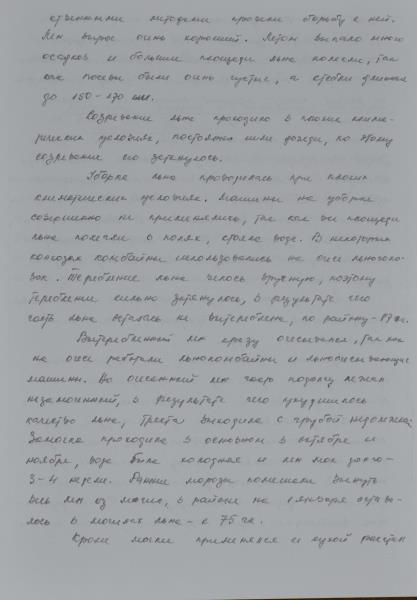 методами провели борьбу с ней.
Лен вырос очень хороший. Летом выпало много
осадков и большие площади льна полегли, так
как посевы были очень густые, а стебли длинные
до 150-170 см.
Созревание льна проходило в плохих клима-
тических условиях, постоянно шли дожди, по этому
созревание его затянулось.
Уборка льна проводилась при плохих
климатических условиях. Машины на уборке
совершенно не применялись, так как все площади
льна полегли в полях, стояла вода. В некоторых
колхозах комбайны использовались на очесе льноголо-
вок. Теребление льна велось вручную, поэтому
теребление сильно затянулось, в результате чего
часть льна осталась не вытереблена, по району - га.
Вытеребленный лен сразу очесывался, так как
на очесе работали льнокомбайны и льноочесывающие
машины. Но очесанный лен часто подолгу лежал
незамоченный, в результате чего ухудшилось
качество льна, треста выходила с грубой недомочкой.
Замочка проходила в основном в октябре и
ноябре, вода была холодная и лен мок долго-
3-4 недели. Ранние морозы помешали вынуть
весь лен из мочил, в районе на 1 января оста-
лось в мочилах льна - 75 га.
Кроме мочки применялся и сухой расстил